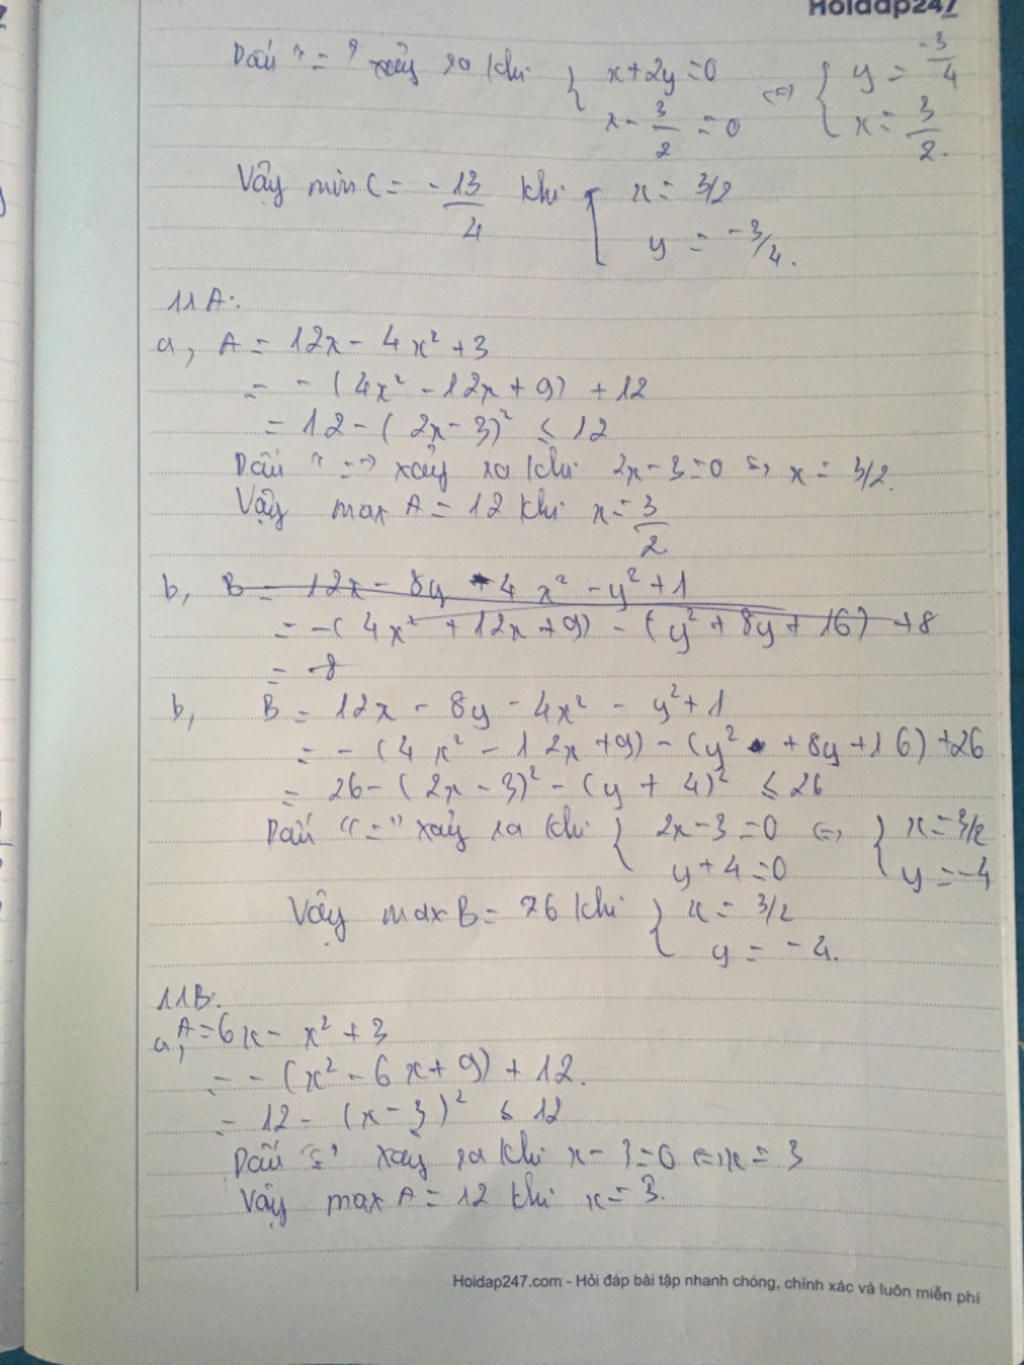 Hoidap247
Dấu "=" xảy ra khi { x+2y=0 x-3/2=0 <=> { y=-3/4 x=3/2.
Vậy min C = -13/4 khi { x=3/2 y=-3/4.
11A:
a, A = 12x - 4x² + 3
= -(4x² - 12x + 9) + 12
= 12 - (2x - 3)² ≤ 12
Dấu "=" xảy ra khi 2x-3=0 => x = 3/2.
Vậy max A = 12 khi x = 3/2
b, B = 12x - 8y - 4x² - y² + 1
= -(4x² + 12x + 9) - (y² + 8y + 16) + 8
= -8
b, B = 12x - 8y - 4x² - y² + 1
= -(4x² - 12x + 9) - (y² + 8y + 16) + 26
= 26 - (2x - 3)² - (y + 4)² ≤ 26
Dấu "=" xảy ra khi { 2x-3=0 y+4=0 <=> { x=3/2 y=-4
Vậy max B = 26 khi { x = 3/2 y = -4.
11B.
a, A = 6x - x² + 3
= -(x² - 6x + 9) + 12.
= 12 - (x - 3)² ≤ 12
Dấu "=" xảy ra khi x - 3 = 0 <=> x = 3
Vậy max A = 12 khi x = 3.
Hoidap247.com - Hỏi đáp bài tập nhanh chóng, chính xác và luôn miễn phí